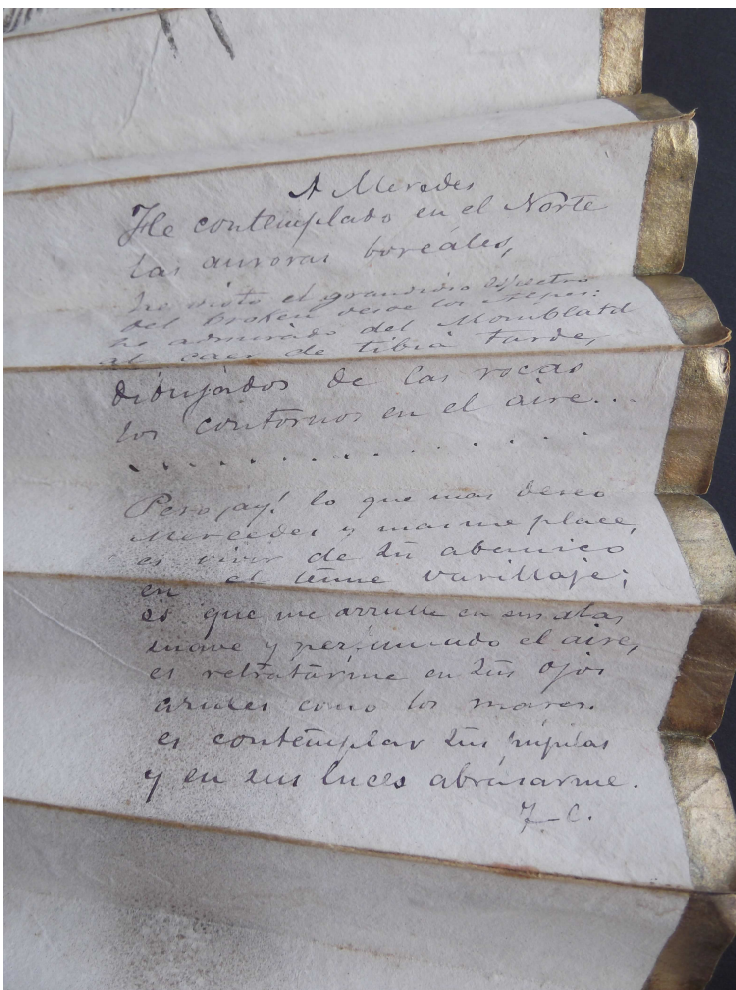 A Mercedes
He contemplado en el Norte
las auroras boreales,
he visto el grandioso espectro
del Broken desde los Alpes:
he admirado del Momblatd
al caer de tibia tarde,
dibujados de las rocas
los contornos en el aire...
. . . . . . . . . . . . .
Pero ¡ay! lo que mas deseo
Mercedes y mas me place,
es vivir de tu abanico
en el ténue varillaje;
es que me arrulle en sus alas
suave y perfumado el aire,
es retratarme en tus ojos
azules como los mares.
es contemplar tus pupilas
y en sus luces abrasarme.
F. C.